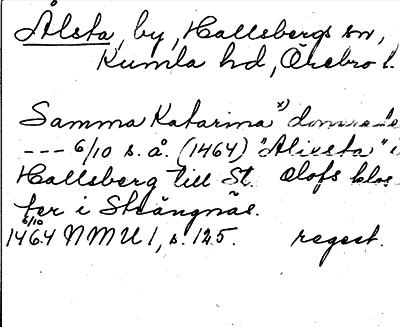 Ålsta, by, Hallsbergs sn,
Kumla hd, Örebro l.
Samma Katarina"
--- 6/10 s. å. (1464) "Alirsta" i
Hallsberg till St. Olofs klos
ter i Strängnäs.
6/10
1464 NMU 1, s. 125. regest.